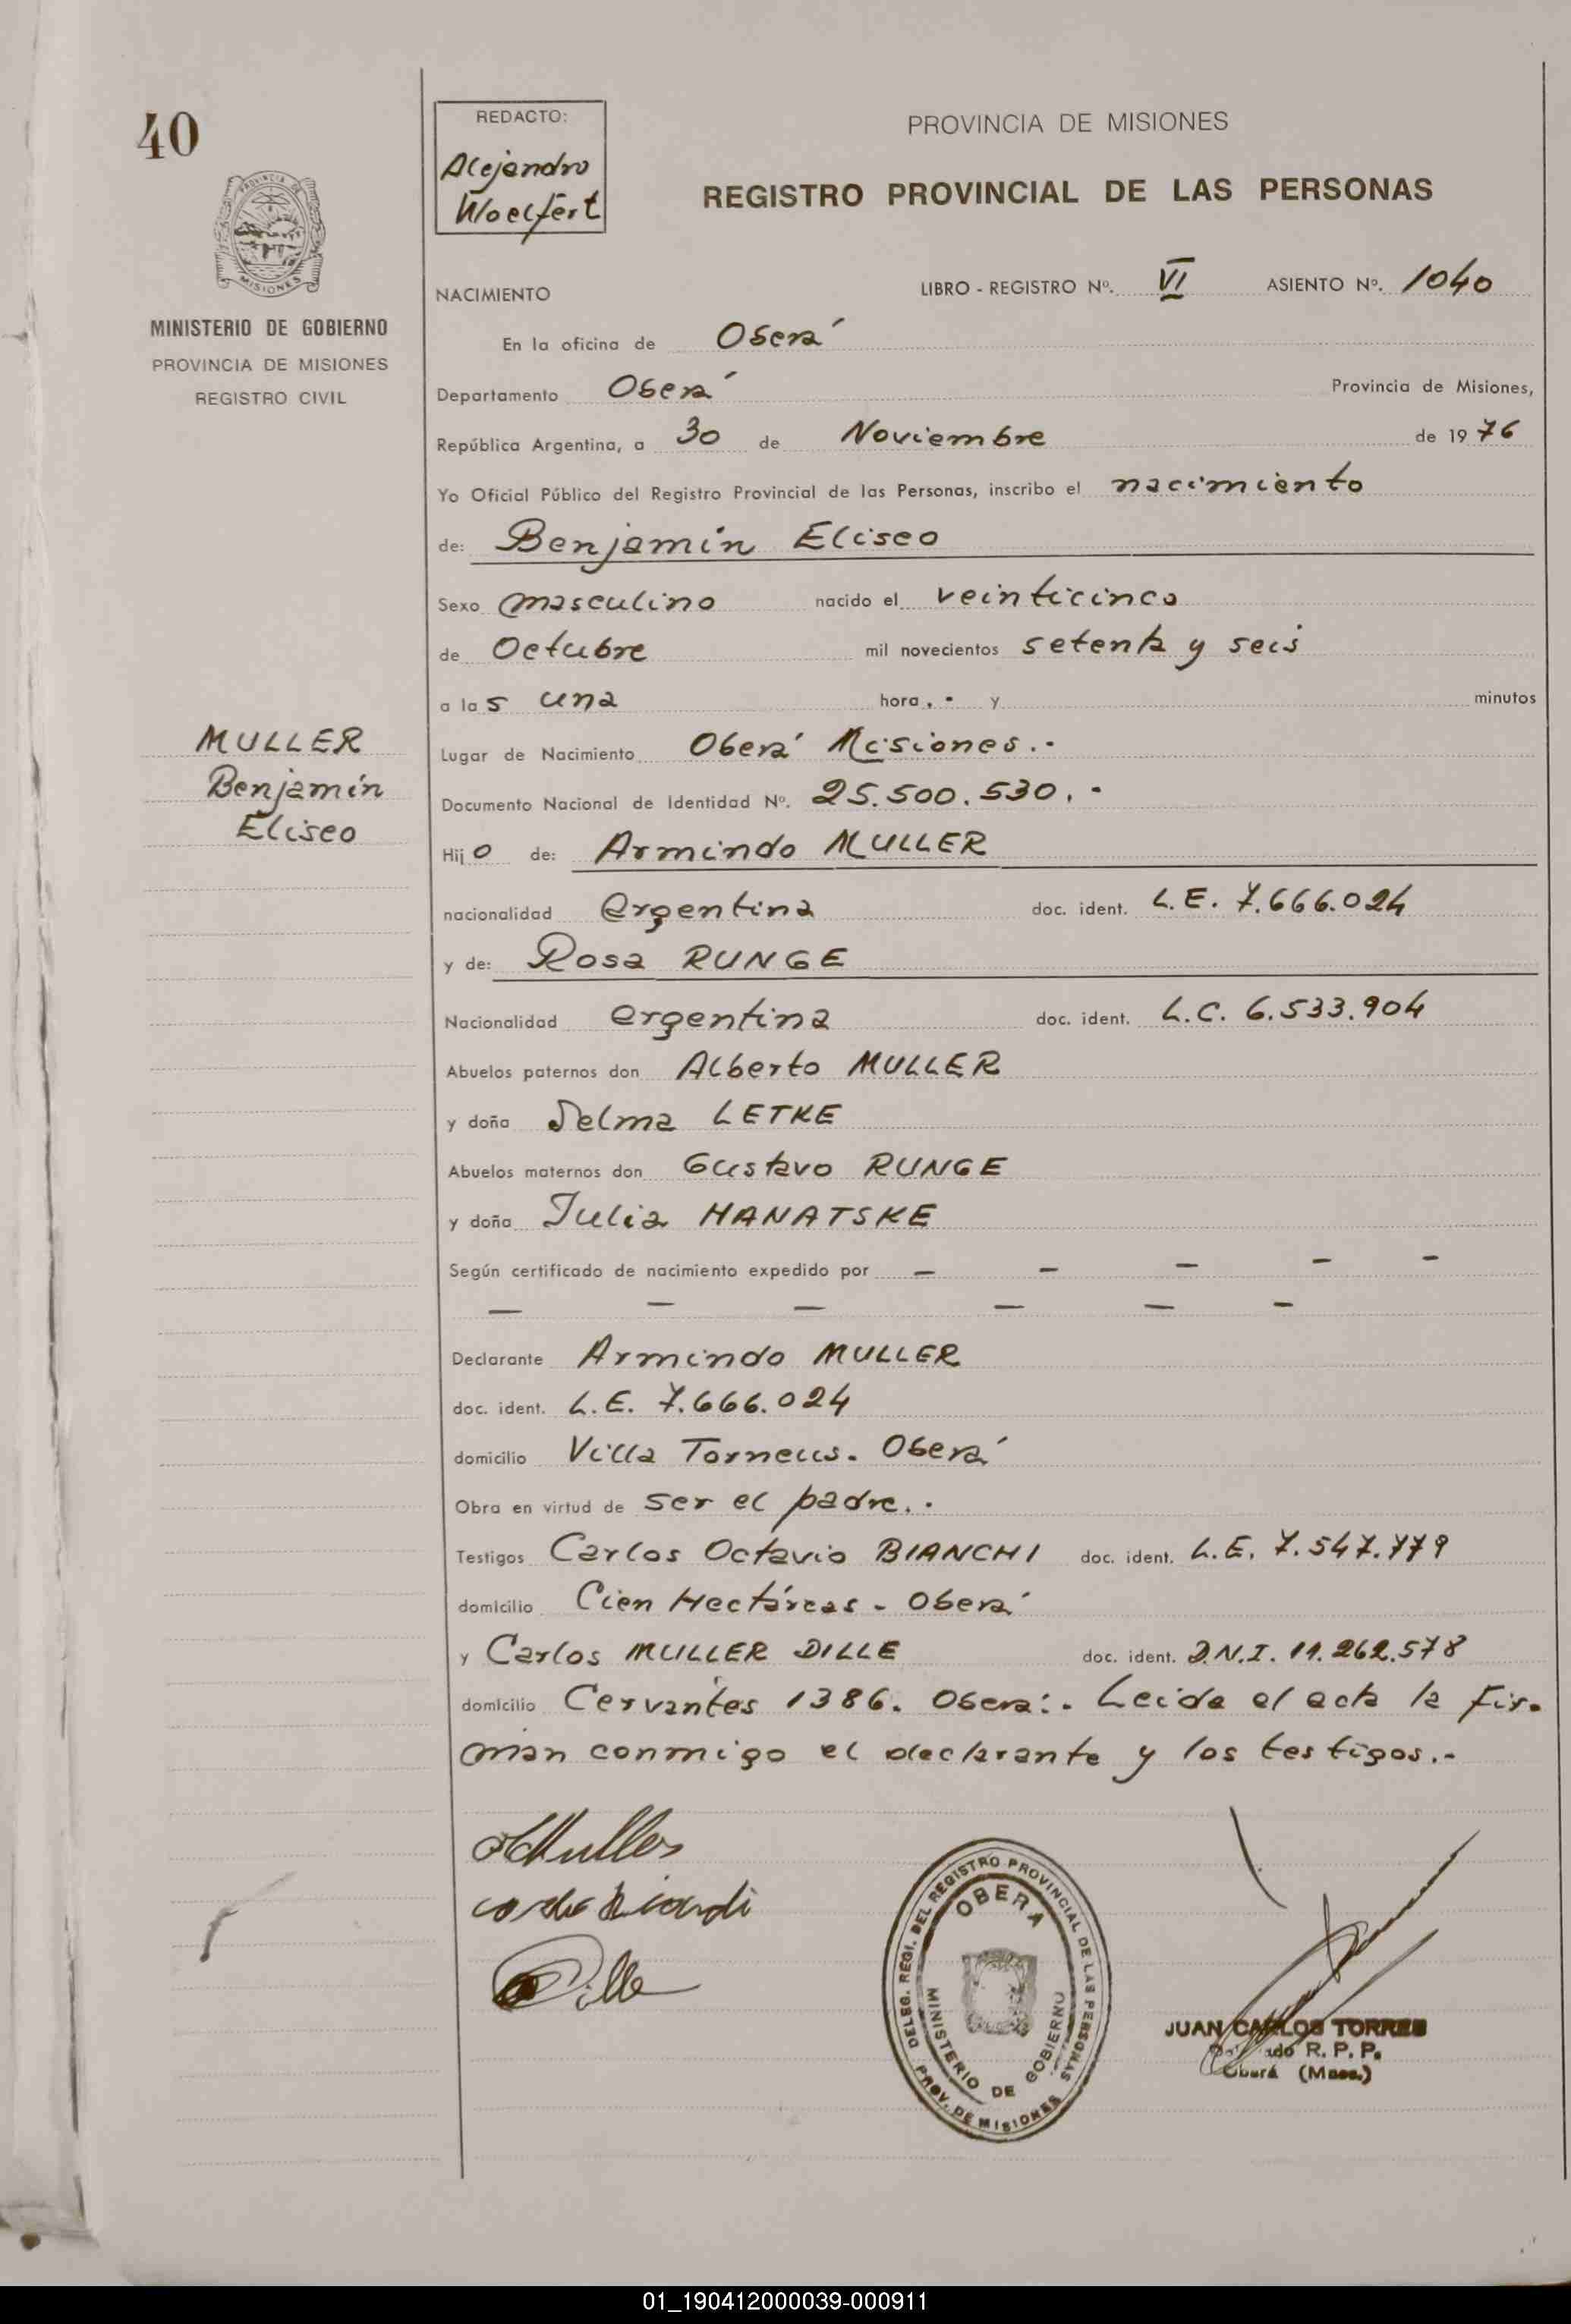 40
REDACTO:
Alejandro
Woelfert
PROVINCIA DE MISIONES
REGISTRO PROVINCIAL DE LAS PERSONAS
PROVINCIA DE
MISIONES
MINISTERIO DE GOBIERNO
PROVINCIA DE MISIONES
REGISTRO CIVIL
NACIMIENTO
LIBRO - REGISTRO Nº. VI ASIENTO Nº. 1040
En la oficina de Oberá
Departamento Oberá Provincia de Misiones,
República Argentina, a 30 de Noviembre de 1976
Yo Oficial Público del Registro Provincial de las Personas, inscribo el nacimiento
de: Benjamín Eliseo
Sexo masculino nacido el veinticinco
de Octubre mil novecientos setenta y seis
a las una hora.- y minutos
MULLER
Benjamín
Eliseo
Lugar de Nacimiento Oberá Misiones.-
Documento Nacional de Identidad Nº. 25.500.530.-
Hijo de: Armindo MULLER
nacionalidad argentina doc. ident. L.E. 7.666.024
y de: Rosa RUNGE
Nacionalidad argentina doc. ident. L.C. 6.533.904
Abuelos paternos don Alberto MULLER
y doña Selma LETKE
Abuelos maternos don Gustavo RUNGE
y doña Julia HANATSKE
Según certificado de nacimiento expedido por — — — — —
— — — — — —
Declarante Armindo MULLER
doc. ident. L.E. 7.666.024
domicilio Villa Torneus. Oberá
Obra en virtud de ser el padre.-
Testigos Carlos Octavio BIANCHI doc. ident. L.E. 7.547.779
domicilio Cien Hectáreas - Oberá
y Carlos MULLER DILLE doc. ident. D.N.I. 11.262.578
domicilio Cervantes 1386. Oberá.- Leida el acta la fir-
man conmigo el declarante y los testigos.-
DELEG. REGI. DEL REGISTRO PROVINCIAL DE LAS PERSONAS
OBERA
MINISTERIO DE GOBIERNO
PROV. DE MISIONES
JUAN CARLOS TORRES
R. P. P.
Oberá (Mnes.)
01_190412000039-000911